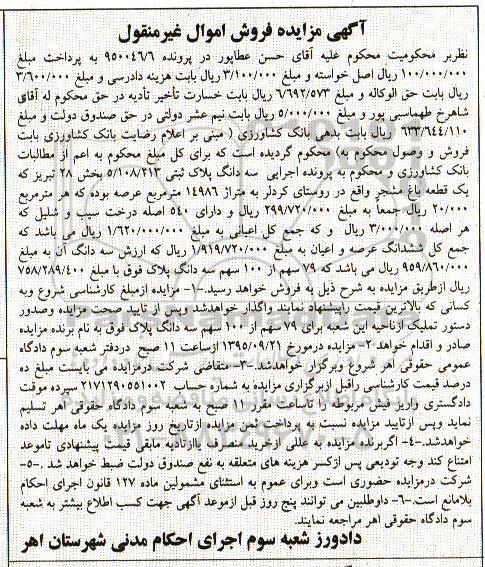 آگهی مزایده فروش اموال غیرمنقول
نظربر محکومیت محکوم علیه آقای حسن عطاپور در پرونده ۹۵۰۰۴۶/۶ به پرداخت مبلغ
۱۰۰/۰۰۰/۰۰۰ ریال اصل خواسته و مبلغ ۳/۱۰۰/۰۰۰ ریال بابت هزینه دادرسی و مبلغ ۳/۶۰۰/۰۰۰
ریال بابت حق الوکاله و مبلغ ۶/۶۹۲/۵۷۳ ریال بابت خسارت تأخیر تأدیه در حق محکوم له آقای
شاهرخ طهماسبی پور و مبلغ ۵/۰۰۰/۰۰۰ ریال بابت نیم عشر دولتی در حق صندوق دولت و مبلغ
۶۳۳/۶۴۴/۱۱۰ ریال بابت بدهی بانک کشاورزی ( مبنی بر اعلام رضایت بانک کشاورزی بابت
فروش و وصول محکوم به) محکوم گردیده است که برای کل مبلغ محکوم به اعم از مطالبات
بانک کشاورزی و محکوم به پرونده اجرایی سه دانگ پلاک ثبتی ۵/۱۰۸/۲۱۳ بخش ۲۸ تبریز که
یک قطعه باغ مشجر واقع در روستای کردلر به متراژ ۱۴۹۸۶ مترمربع عرصه بوده که هر مترمربع
۲۰/۰۰۰ ریال جمعاً به مبلغ ۲۹۹/۷۲۰/۰۰۰ ریال و دارای ۵۴۰ اصله درخت سیب و شلیل که
هر اصله ۳/۰۰۰/۰۰۰ ریال و که جمع کل اعیانی به مبلغ ۱/۶۲۰/۰۰۰/۰۰۰ ریال می باشد که
جمع کل ششدانگ عرصه و اعیان به مبلغ ۱/۹۱۹/۷۲۰/۰۰۰ ریال که ارزش سه دانگ آن به مبلغ
۹۵۹/۸۶۰/۰۰۰ ریال می باشد که ۷۹ سهم از ۱۰۰ سهم سه دانگ پلاک فوق با مبلغ ۷۵۸/۲۸۹/۴۰۰
ریال ازطریق مزایده به شرح ذیل به فروش خواهد رسید.-۱- مزایده ازمبلغ کارشناسی شروع وبه
کسانی که بالاترین قیمت راپیشنهاد نمایند واگذار خواهدشد وپس از تایید صحت مزایده وصدور
دستور تملیک ازناحیه این شعبه برای ۷۹ سهم از ۱۰۰ سهم سه دانگ پلاک فوق به نام برنده مزایده
صادر و اقدام خواهد ۲- مزایده درمورخ ۱۳۹۵/۰۹/۲۱ ازساعت ۱۱ صبح دردفتر شعبه سوم دادگاه
عمومی حقوقی اهر شروع وبرگزار خواهدشد.-۳-متقاضی شرکت درمزایده می بایست مبلغ ده
درصد قیمت کارشناسی راقبل ازبرگزاری مزایده به شماره حساب ۲۱۷۱۲۹۰۵۵۱۰۰۲ سپرده موقت
دادگستری واریز فیش مربوطه را تاساعت مقرر ۹ صبح به شعبه سوم دادگاه حقوقی اهر تسلیم
نماید وپس ازتایید مزایده نسبت به پرداخت ثمن مزایده ازتاریخ روز مزایده یک ماه مهلت داده
خواهدشد.-۴- اگربرنده مزایده به عللی ازخرید منصرف یاازتادیه مابقی قیمت پیشنهادی تاموعد
امتناع کند وجه تودیعی پس ازکسر هزینه های متعلقه به نفع صندوق دولت ضبط خواهد شد .-۵-
شرکت درمزایده حضوری است وبرای عموم به استثنای مشمولین ماده ۱۲۷ قانون اجرای احکام
بلامانع است.-۶- داوطلبین می توانند پنج روز قبل ازموعد آگهی جهت کسب اطلاع بیشتر به شعبه
سوم دادگاه حقوقی اهر مراجعه نمایند.
دادورز شعبه سوم اجرای احکام مدنی شهرستان اهر